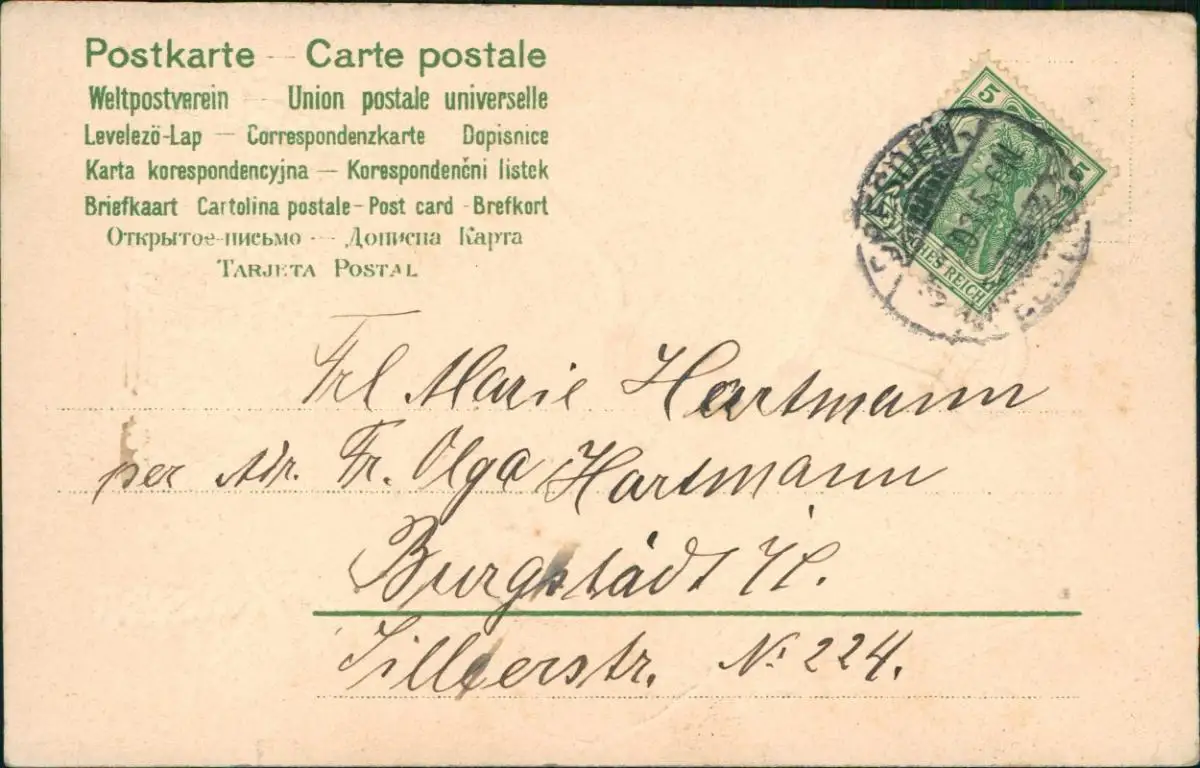 Postkarte — Carte postale
Weltpostverein — Union postale universelle
Levelezö-Lap — Correspondenzkarte Dopisnice
Karta korespondencyjna — Korespondenčni listek
Briefkaart Cartolina postale - Post card - Brefkort
Открытое-письмо — Дописна Карта
TARJETA POSTAL
5 5
DRESDEN
REICH
Frl Marie Hartmann
per Adr. Fr. Olga Hartmann
Burgstädt
No 224.